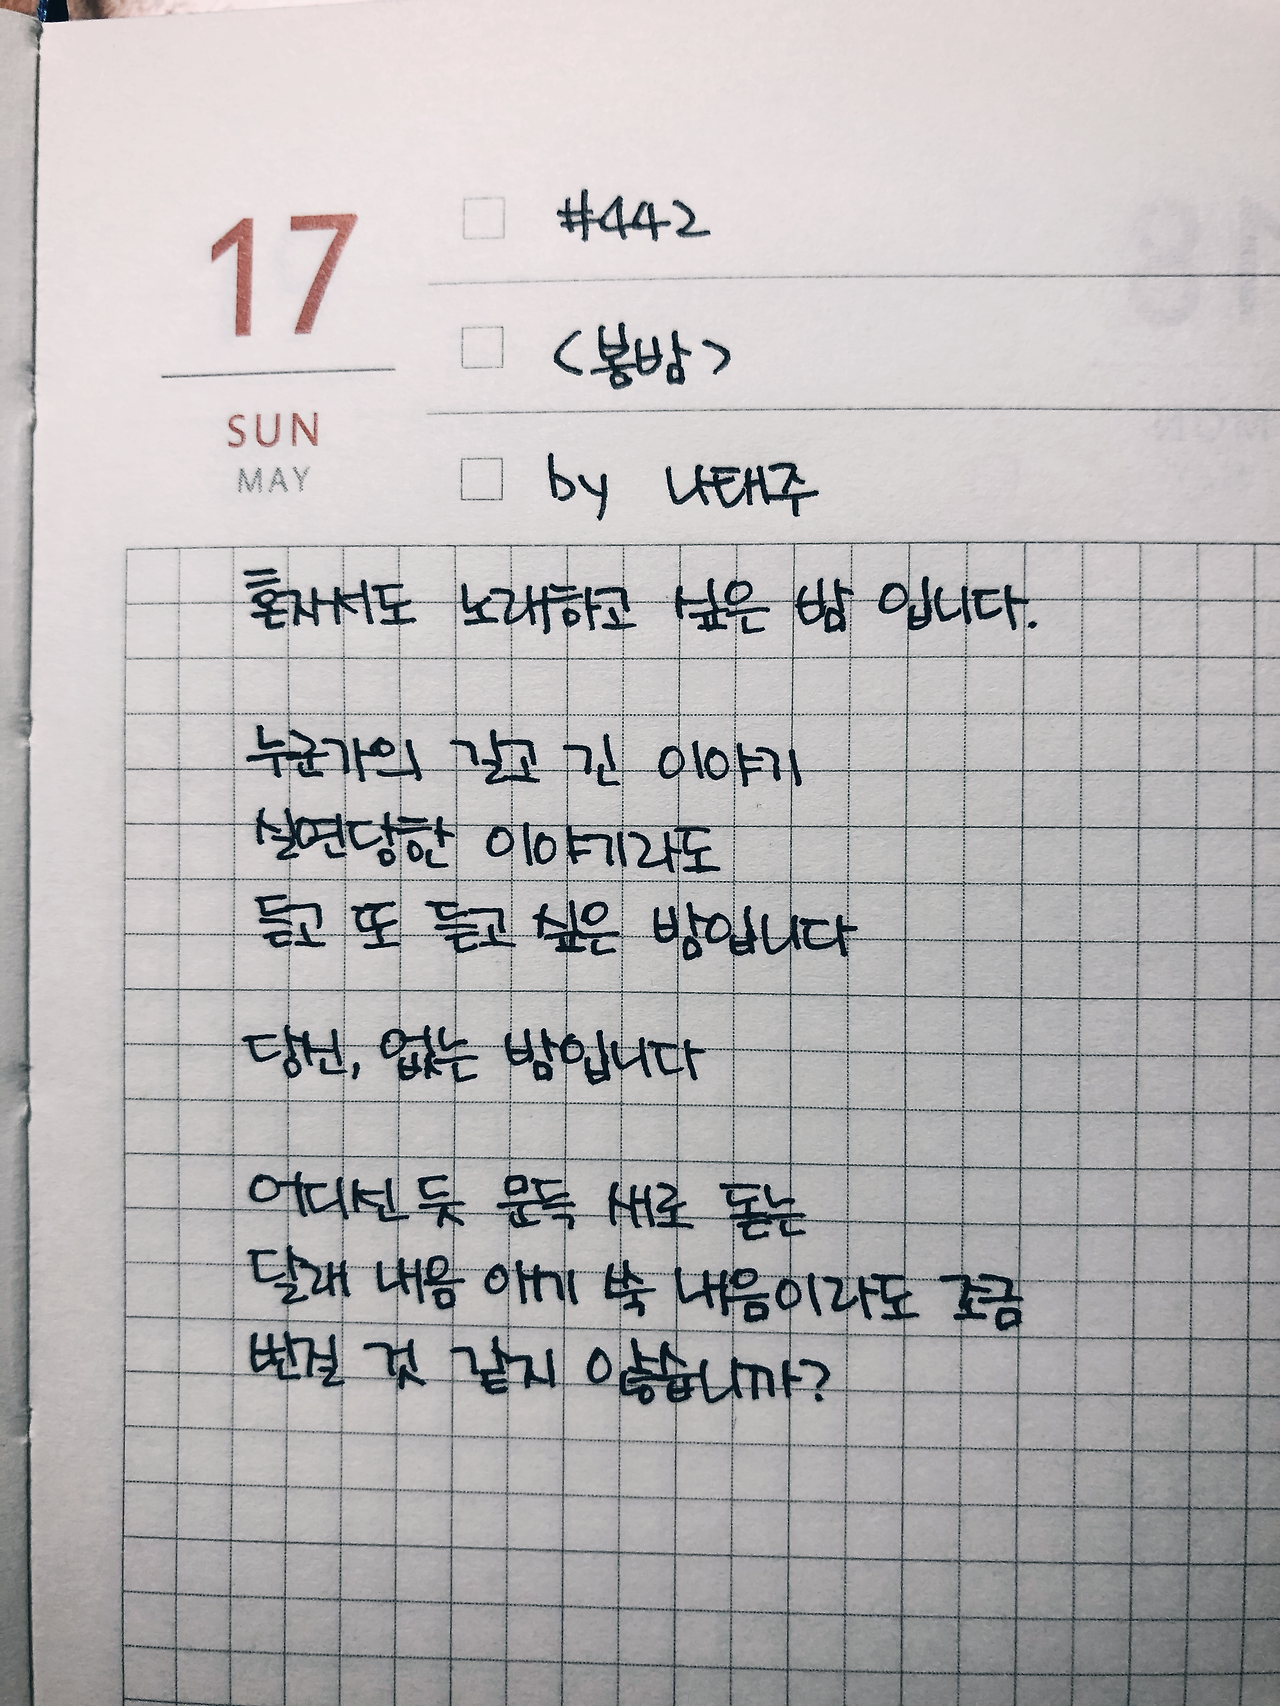 17
SUN
MAY
#442
<봉밤>
by 나태주
혼자서도 노래하고 싶은 밤 입니다.
누군가의 길고 긴 이야기
실연당한 이야기라도
듣고 또 듣고 싶은 밤입니다
당신, 없는 밤입니다
어디선 듯 문득 새로 돋는
달래 내음 애기 쑥 내음이라도 조금
번질 것 같지 않습니까?